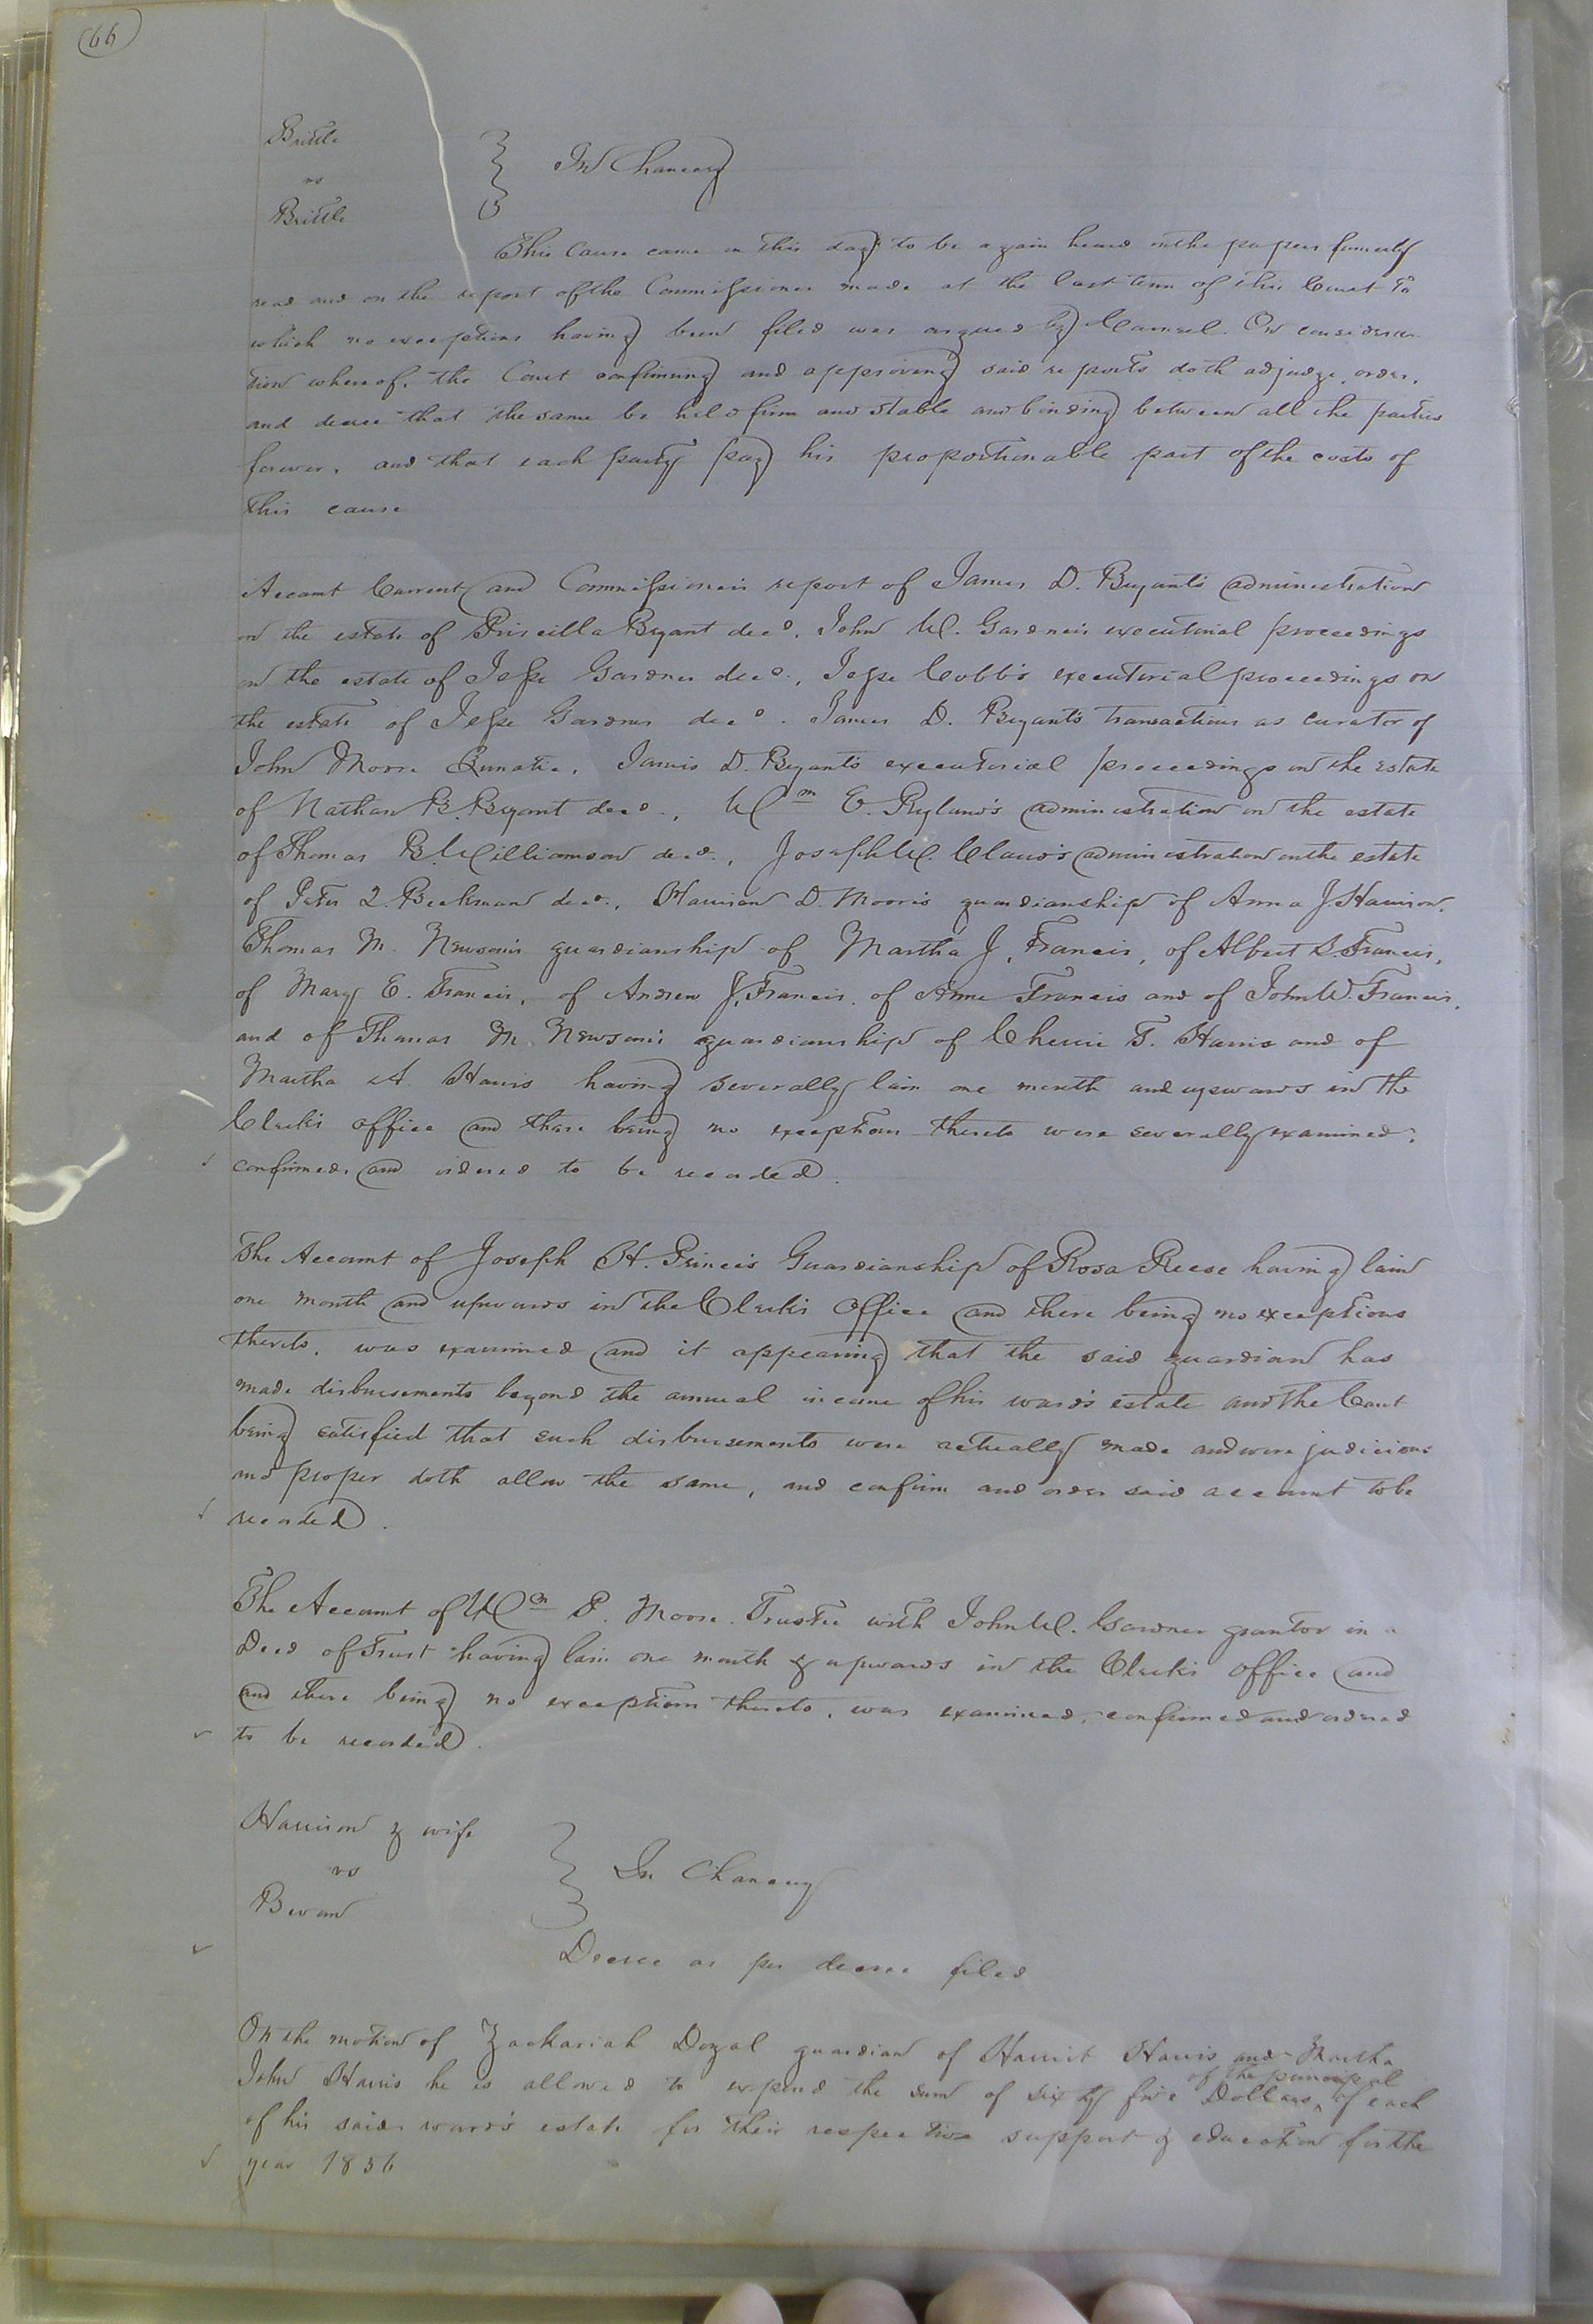 66
Brittle
vs
Brittle
In Chancery
This cause came on this day to be again heard on the papers formerly
read and on the report of the Commissioner made at the last term of this Court to
which no exceptions having been filed was argued by Counsel. On considera-
tion whereof, the Court confirming and approving said reports doth adjudge, order,
and decree that the same be held firm and stable and binding between all the parties
forever, and that each party pay his proportionable part of the costs of
this cause
Account Current and Commissioners report of James D. Bryant's administration
on the estate of Priscilla Bryant decd. John W. Gardner's executorial proceedings
on the estate of Jesse Gardner decd., Jesse Cobb's executorial proceedings on
the estate of Jesse Gardner decd. James D. Bryant's transactions as curator of
John Moore Lunatic. James D. Bryant's executorial proceedings on the estate
of Nathan B. Bryant decd., Wm E. Ryland's administration on the estate
of Thomas B. Williamson decd., Joseph W. Claud's administration on the estate
of Peter Beekman decd., Harrison D. Moore's guardianship of Anna J. Harrison,
Thomas M. Newsom's guardianship of Martha J. Francis, of Albert S. Francis,
of Mary E. Francis, of Andrew J. Francis, of Anne Francis and of John W. Francis,
and of Thomas M. Newsom's guardianship of T. Harris and of
Martha A. Harris having severally lain one month and upwards in the
Clerk's office and there being no exceptions thereto were severally examined,
confirmed and ordered to be recorded.
The Account of Joseph H. Prince's Guardianship of Rosa Reese having lain
one month and upwards in the Clerk's Office and there being no exceptions
thereto, was examined and it appearing that the said guardian has
made disbursements beyond the annual income of his ward's estate and the Court
being satisfied that such disbursements were actually made and were judicious
and proper doth allow the same, and confirm and order said account to be
recorded.
The Account of Wm P. Moore Trustee with John W. Gardner grantor in a
Deed of Trust having lain one month & upwards in the Clerk's Office and
and there being no exceptions thereto, was examined, confirmed and ordered
to be recorded.
Harrison & wife
vs
Bevan
In Chancery
Decree as per decree filed
On the motion of Zackariah Doyal guardian of Harriet Harris and Martha
of the principal
John Harris he is allowed to expend the sum of sixty five Dollars, of each
of his said ward's estate for their respective support & education for the
year 1856